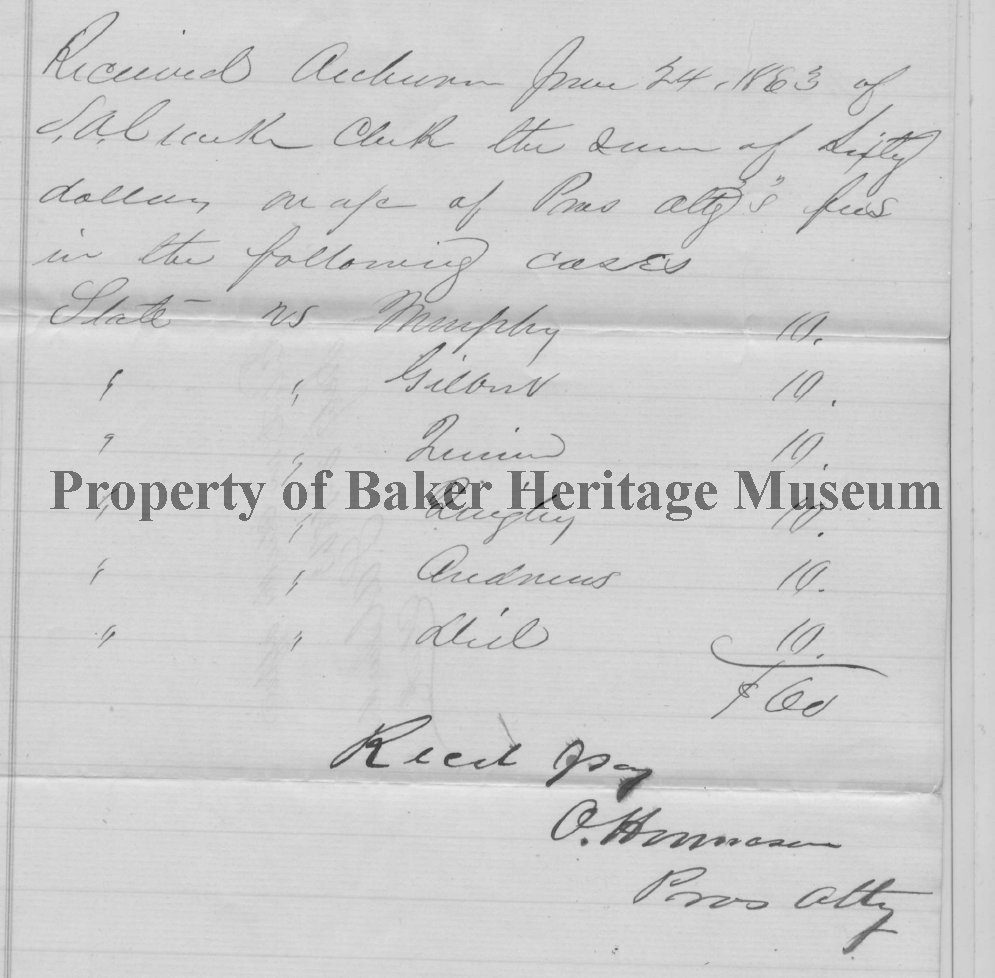 Received Auburn June 24, 1863 of
S. A. Clerk the sum of Sixty
dollars on a/c of Pros Atty's fees
in the following cases
State vs Murphy 10.
" " Gilbert 10.
" " 10.
Property of Baker Heritage Museum
" " Quigley 10.
" " Andrews 10.
" " 10.
$ 60
Recd pay
O. Humason
Pros Atty